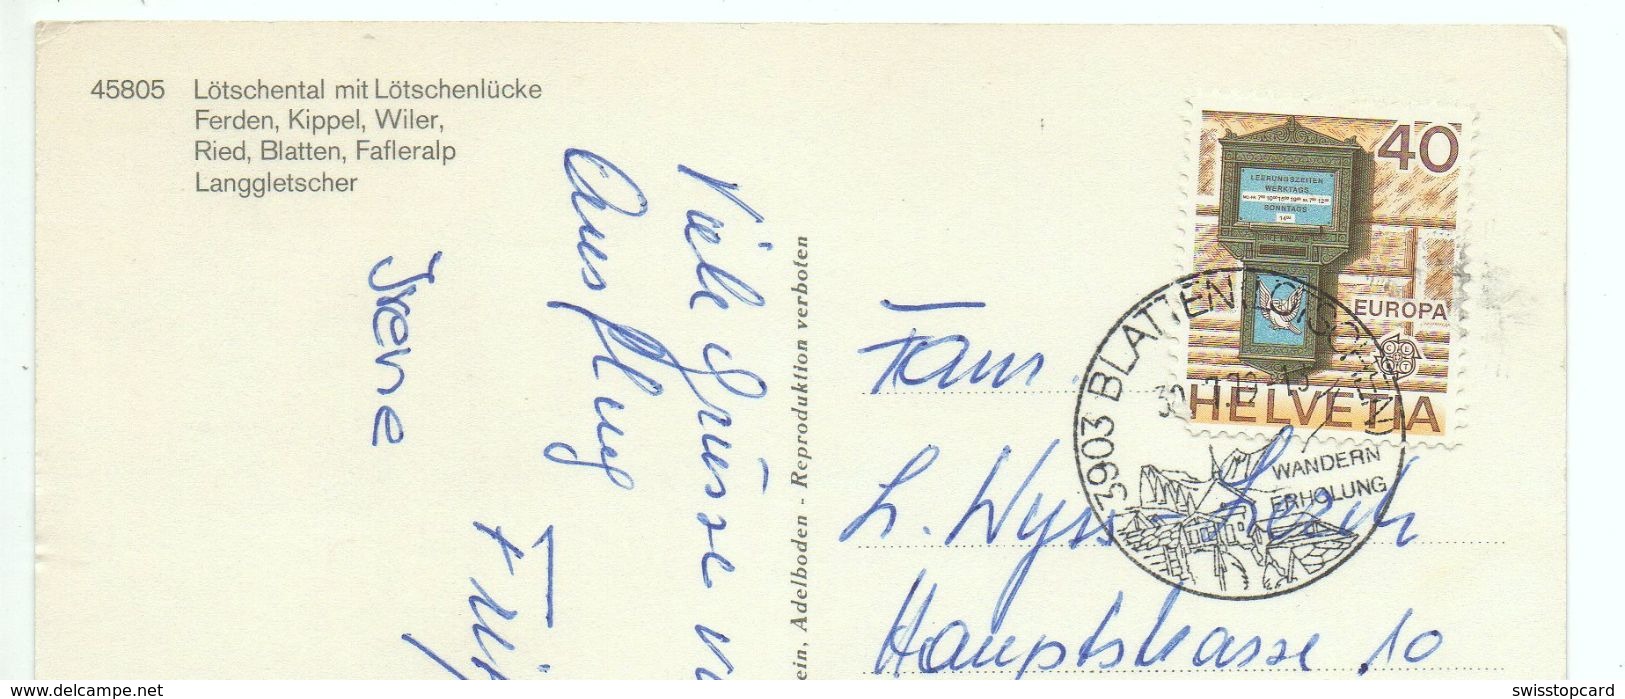 45805 Lötschental mit Lötschenlücke
Ferden, Kippel, Wiler,
Ried, Blatten, Fafleralp
Langgletscher
Viele Grüsse
Ausflug
Irene
ein, Adelboden - Reproduktion verboten
40
LEERUNGSZEITEN
WERKTAGS
SONNTAGS
EUROPA
HELVETIA
3903 BLATTEN (LÖTSCHEN)
WANDERN
ERHOLUNG
Fam.
L. Wyss-
Hauptstrasse 10
www.delcampe.net
swisstopcard